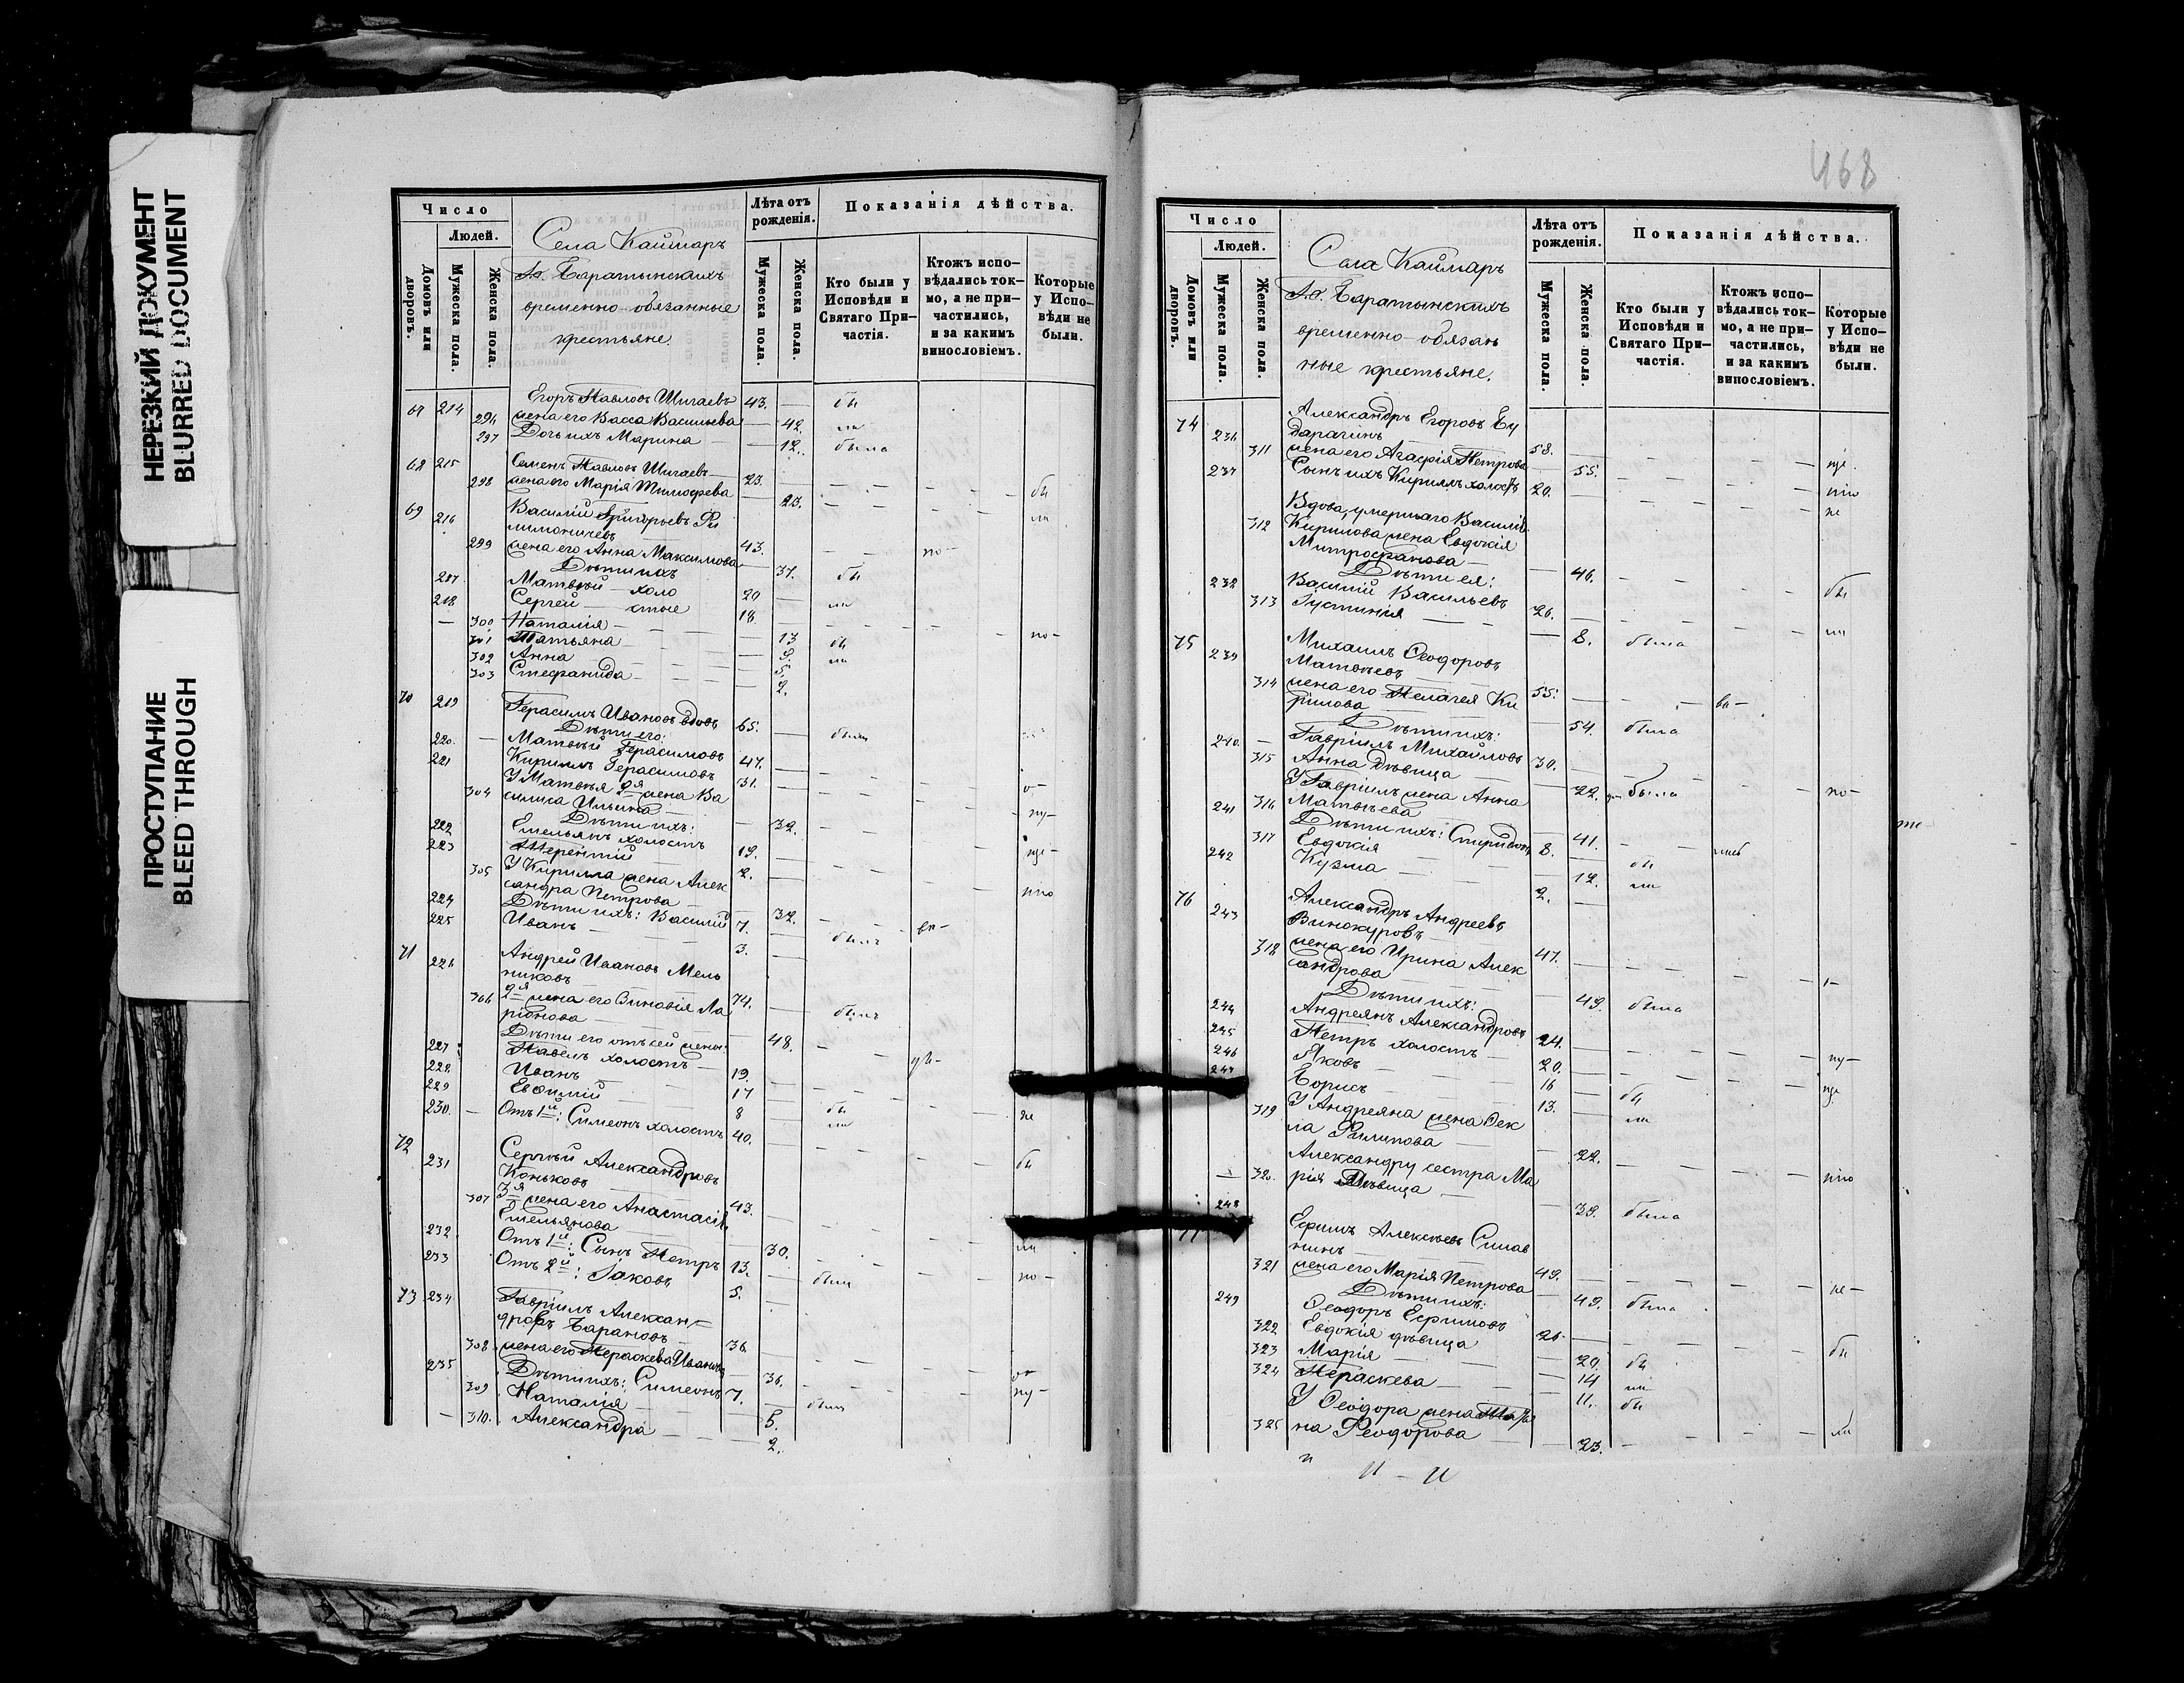 НЕРЕЗКИЙ ДОКУМЕНТ
BLURRED DOCUMENT
ПРОСТУПАНИЕ
BLEED THROUGH
Число
Людей.
Домовъ или дворовъ.
Мужеска пола.
Женска пола.
Села Каймаръ
Гг. Баратынскихъ
временно-обязанные
крестьяне.
Лѣта отъ рожденія.
Мужеска пола.
Женска пола.
Показанія дѣйства.
Кто были у Исповѣди и Святаго Причастія.
Ктожъ исповѣдались токмо, а не причастились, и за какимъ винословіемъ.
Которые у Исповѣди не были.
67 214 Егоръ Павловъ Шигаевъ 43. — бы
296 жена его Васса Васильева — 42. ли
297 Дочь ихъ Марина — 12. была
68 215 Семенъ Павловъ Шигаевъ 23.
298 жена его Марія Тимофеева — 23. бы
69 216 Василій Григорьевъ Фи ли
лимоничевъ 43. — по-
299 жена его Анна Максимова — 37. бы
Дѣти ихъ
217 Матвѣй — холо 20 — ли
218 Сергей — стые 18.
300 Наталія — 13 по-
301 Татьяна — 9. бы
302 Анна — 5. ли
303 Стефанида — 2.
70 219 Герасимъ Ивановъ вдовъ 65. — былъ
Дѣти его:
220. Матвѣй Герасимовъ 47.
221 Кириллъ Герасимовъ 31.
У Матвѣя 2я жена Ва
304 силиса Ильина — 32. ну-
Дѣти ихъ:
222 Емельянъ холостъ 19.
223 Терентій 2.
У Кирилла жена Алек
305 сандра Петрова — 32.
224 Дѣти ихъ: Василій 7.
225 Иванъ 3.
71 226 Андрей Ивановъ Мель
никовъ 74. — былъ
306 2я жена его Зиновія Ла
ріонова — 48.
Дѣти его отъ сей жены:
227 Павелъ холостъ 19.
228 Иванъ 17
229 Евфимій 8 бы
230. Отъ 1й: Симеонъ холостъ 40. ли не
72 231 Сергѣй Александровъ бы
Коньковъ 43.
307 3я жена его Анастасія
Емельянова — 30. ли
232. Отъ 1й: Сынъ Петръ 13. — были
233 Отъ 2й: Іаковъ 5. по-
73 234 Гавріилъ Алексан-
дровъ Барановъ 36.
308. жена его Параскева Иванова — 36.
235 Дѣти ихъ: Симеонъ 7. ну-
309 Наталія — 5. были
310. Александра — 2.
468
Число
Людей.
Домовъ или дворовъ.
Мужеска пола.
Женска пола.
Села Каймаръ
Г.г. Баратынскихъ
временно-обязан
ные крестьяне.
Лѣта отъ рожденія.
Мужеска пола.
Женска пола.
Показанія дѣйства.
Кто были у Исповѣди и Святаго Причастія.
Ктожъ исповѣдались токмо, а не причастились, и за какимъ винословіемъ.
Которые у Исповѣди не были.
74 236 Александръ Егоровъ Бу
дарагинъ 58.
311 жена его Агафія Петрова — 55.
237 Сынъ ихъ Кириллъ холостъ 20. не
Вдова, умершаго Василія
312 Кирилова жена Евдокія
Митрофанова — 46. бы
Дѣти ея:
238 Василій Васильевъ 26. ли
313 Іустинія — 8. была
75 239 Михаилъ Феодоровъ
Матвѣевъ 55.
314 жена его Пелагея Ки
рилова — 54. была
Дѣти ихъ:
240. Гавріилъ Михайловъ 30. по-
315 Анна дѣвица — 22. была
У Гавріилъ жена Анна
316 Матвѣева — 41.
241 Дѣти ихъ: Спиридонъ 8.
317 Евдокія — 12. бы
242 Кузма 2. ли
76 243 Александръ Андреевъ
Винокуровъ 47.
318 жена его Ирина Алек
сандрова — 49. была
Дѣти ихъ:
244 Андреянъ Александровъ 24. ну-
245 Петръ холостъ 20.
246 Яковъ 16 бы
247 Борисъ 13. ли
У Андреяна жена Фек
319 ла Филипова — 22.
Александру сестра Ма
320. рія Дѣвица — 39. была
77 248 Ефимъ Алексѣевъ Синав
нинъ 49. не-
321 жена его Марія Петрова — 49. была
Дѣти ихъ:
249 Феодоръ Ефимовъ 26. бы
322 Евдокія дѣвица — 20. бы
323 Марія — 14 ли
324 Параскева — 11. бы
У Феодора жена Матре
325 на Феодорова — 23. ли